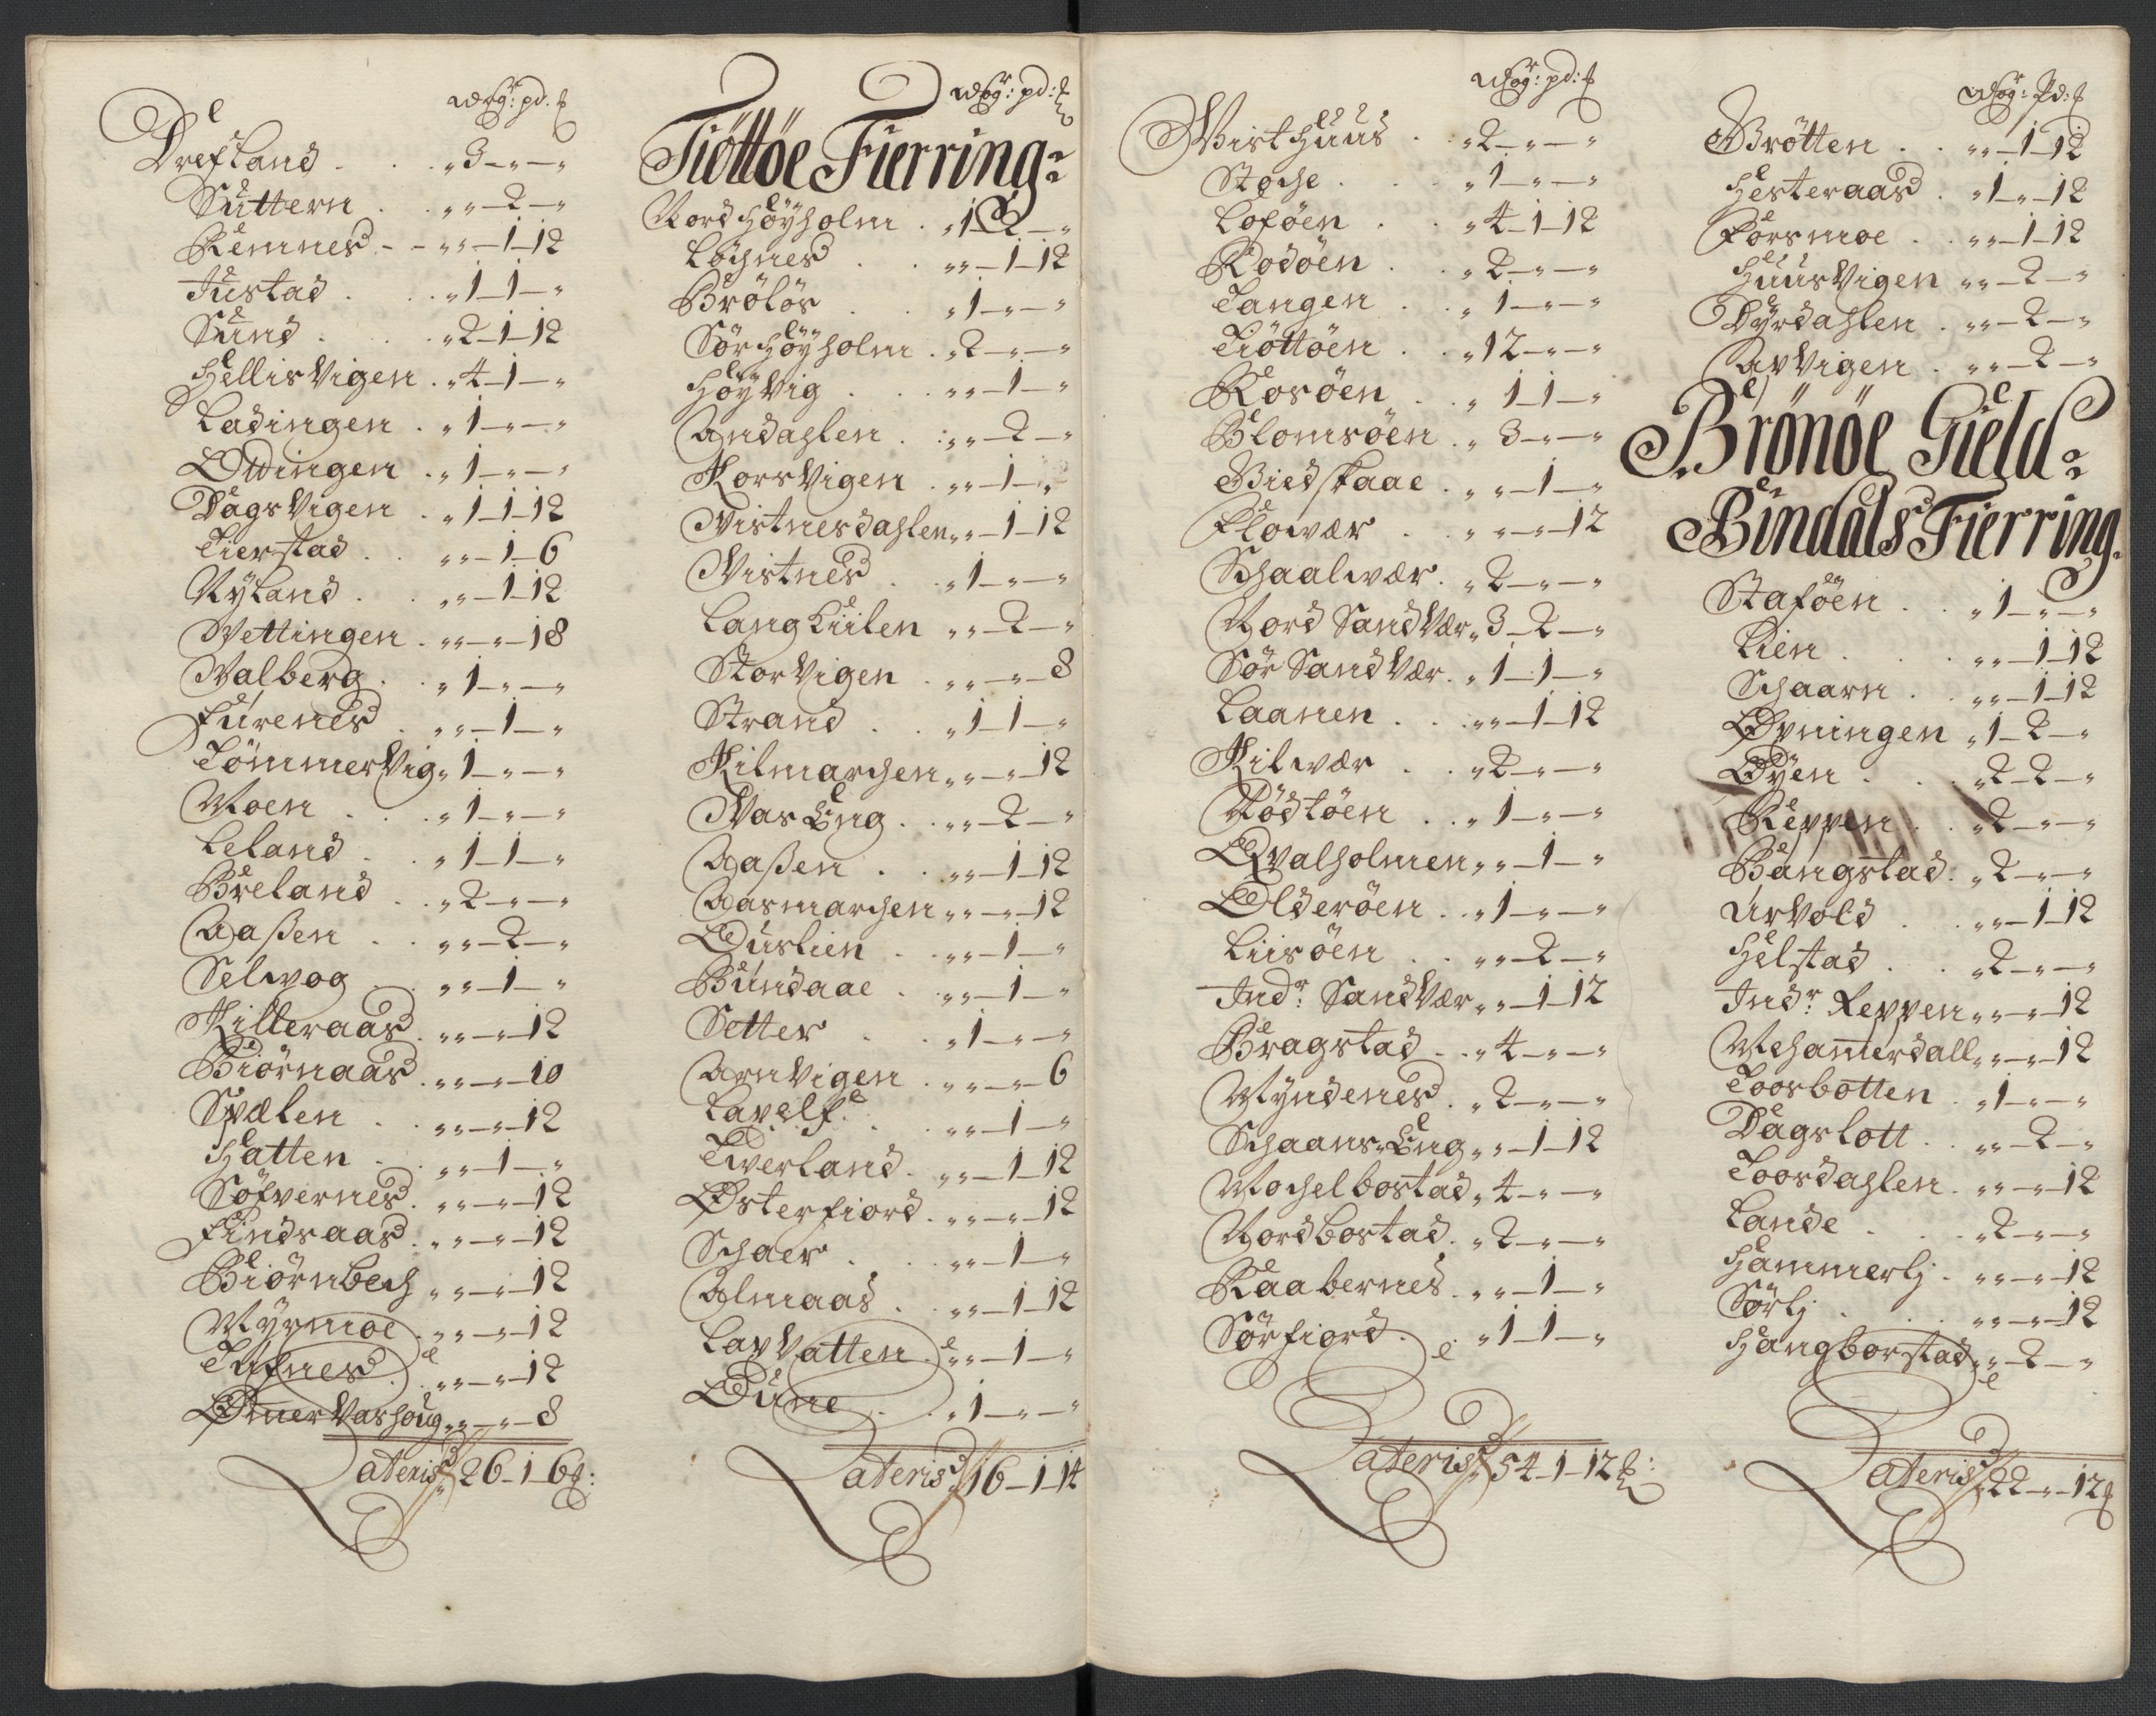 Wog: pd: ℔
Drefland . . „ 3 – „ – „
Suttern . „ „ – 2 – „
Remnes - - „ „ – 1 – 12
Justad . . „ 1 – 1 – „
Sund . . „ 2 – 1 – 12
Hellis Vigen . „ 4 – 1 – „
Ladingen . „ 1 – „ – „
Ottingen . „ 1 – „ – „
Dags Vigen . „ 1 – 1 – 12
Tierstad . . „ „ – 1 – 6
Nyland . . „ „ – 1 – 12
Vettingen . „ „ – „ – 18
Valberg . . „ 1 – „ – „
Furenes . „ „ – 1 – „
Tömmer Vig „ 1 – „ – „
Moen . . „ 1 – „ – „
Leland . . „ 1 – 1 – „
Breland . . „ 2 – „ – „
Aaßen . . „ „ – 2 – „
Selwog . . „ „ – 1 – „
Kilteraas . „ „ – „ – 12
Biörnaas . „ „ – „ – 10
Spælen . . „ „ – „ – 12
Hatten . . „ „ – 1 – „
Söfvernes . „ „ – „ – 12
Findsaas . „ „ – „ – 12
Biörnbech „ „ – „ – 12
Myrmoe . „ „ – „ – 12
Tufnes . „ „ – „ – 12
Ømer Vashoug „ „ – „ – 8
Lateris 26 – 1 – 6 ℔:
Wog: pd: ℔
Tiöttöe Fierring:
Nord Höyholm . „ 1 – 2 – „
Löchnes . . „ „ – 1 – 12
Brölös . . „ 1 – „ – „
Sör Höyholm . „ 2 – „ – „
Höy Vig . . „ „ – 1 – „
Andahlen . „ „ – 2 – „
Kors Vigen . „ „ – 1 – „
Vistnesdahlen „ „ – 1 – 12
Vistnes . . „ 1 – „ – „
Lang Kiilen „ „ – 2 – „
Stor Vigen . „ „ – „ – 8
Strand . . „ 1 – 1 – „
Kilmarchen „ „ – „ – 12
Vas Eng . . „ „ – 2 – „
Aaßen . . „ „ – 1 – 12
Aasmarchen „ „ – „ – 12
Duslien . . „ „ – 1 – „
Bundaae . „ „ – 1 – „
Setter . . „ 1 – „ – „
Arn Vigen . „ „ – „ – 6
Lapelf . . „ „ – 1 – „
Twerland . „ „ – 1 – 12
Østerfiord . „ „ – „ – 12
Schaer . . „ „ – 1 – „
Almaas . . „ „ – 1 – 12
Lap Vatten . „ „ – 1 – „
Dune . . „ 1 – „ – „
Lateris 16 – 1 – 14
Wog: pd: ℔
Visthuus . „ 2 – „ – „
Stoche . . „ 1 – „ – „
Loföen . . „ 4 – 1 – 12
Rodöen . . „ 2 – „ – „
Tangen . . „ 1 – „ – „
Tiöttöen . „ 12 – „ – „
Rosöen . . „ 1 – 1 – „
Blomsöen . „ 3 – „ – „
Giedskaae . „ „ – 1 – „
Flowær . . „ „ – „ – 12
Schaalwær . „ 2 – „ – „
Nord Sand Vær „ 3 – 2 – „
Sör Sand Vær . „ 1 – 1 – „
Laanen . . „ „ – 1 – 12
Kilwær . . „ 2 – „ – „
Rödtöen . . „ 1 – „ – „
Qvalholmen „ „ – 1 – „
Olderöen . . „ 1 – „ – „
Liisöen . . „ „ – 2 – „
Indr: Sand Vær „ „ – 1 – 12
Bragstad . „ 4 – „ – „
Myndenes . „ 2 – „ – „
Schaans Eng „ „ – 1 – 12
Mochelbostad „ 4 – „ – „
Nordbostad . „ 2 – „ – „
Raabernes . „ „ – 1 – „
Sörfiord . . „ 1 – 1 – „
Lateris 54 – 1 – 12 ℔:
Wog: Pd: ℔
Brötten . . „ „ – 1 – 12
Hesteraas . „ 1 – „ – 12
Forsmoe . „ „ – 1 – 12
Huus Vigen „ „ – 2 – „
Dyrdahlen . „ „ – 2 – „
AP Vigen . „ „ – 2 – „
Brönöe Gield:
Bindals Fierring.
Staföen . . „ 1 – „ – „
Lien . . „ „ – 1 – 12
Schaarn . . „ „ – 1 – 12
Øpningen „ 1 – 2 – „
Øyen . . „ 2 – 2 – „
Reppen . . „ 2 – „ – „
Bangstad . „ 2 – „ – „
Urvold . . „ „ – 1 – 12
Helstad . . „ 2 – „ – „
Indr: Reppen „ „ – „ – 12
Mehamerdall „ „ – „ – 12
Toosbotten . „ 1 – „ – „
Dagslott . . „ „ – 2 – „
Toosdahlen . „ „ – „ – 12
Lande . . „ 2 – „ – „
Hammerlj . „ „ – „ – 12
Sörlj . . „ „ – „ – 12
Hangborstad „ „ – 2 – „
Lateris 22 – „ – 12 ℔